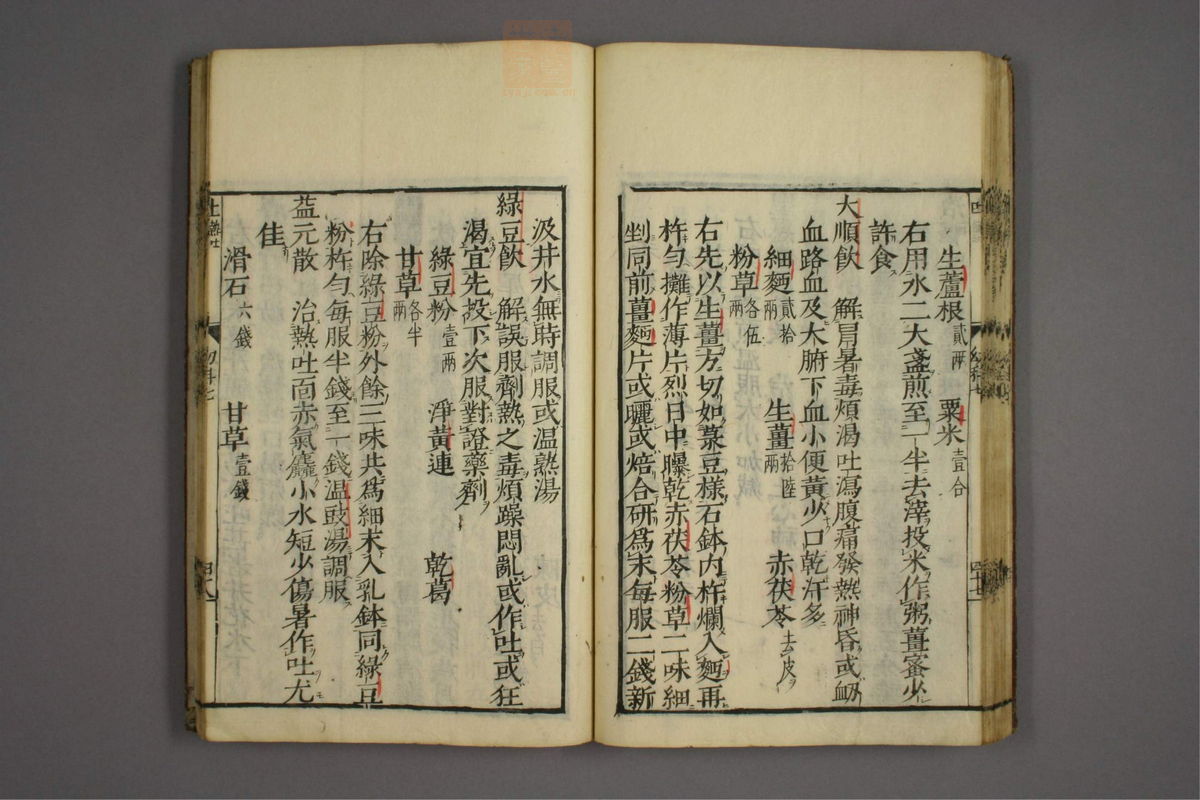 生蘆根貳兩　粟米壹合
右用水二大盞煎至一半去滓投米作粥薑蜜少
許食
大順飲　解冒暑毒煩渴吐瀉腹痛發熱神昏或衄
血路血及大腑下血小便黃少口乾汗多
細麵貳拾兩　生薑拾陸兩　赤茯苓去皮
粉草各伍兩
右先以生薑方切如菉豆樣石鉢内杵爛入麵再
杵勻攤作薄片烈日中曝乾赤茯苓粉草二味細
剉同前薑麵片或曬或焙合研爲末每服二錢新
汲井水無時調服或温熱湯
綠豆飲　解誤服劑熱之毒煩躁悶亂或作吐或狂
渴宜先投下次服對證藥劑
綠豆粉壹兩　淨黃連　乾葛
甘草各半兩
右除綠豆粉外餘三味共爲細末入乳鉢同綠豆
粉杵勻每服半錢至一錢温豉湯調服
益元散　治熱吐面赤氣麤小水短少傷暑作吐尤
佳
滑石六錢　甘草壹錢